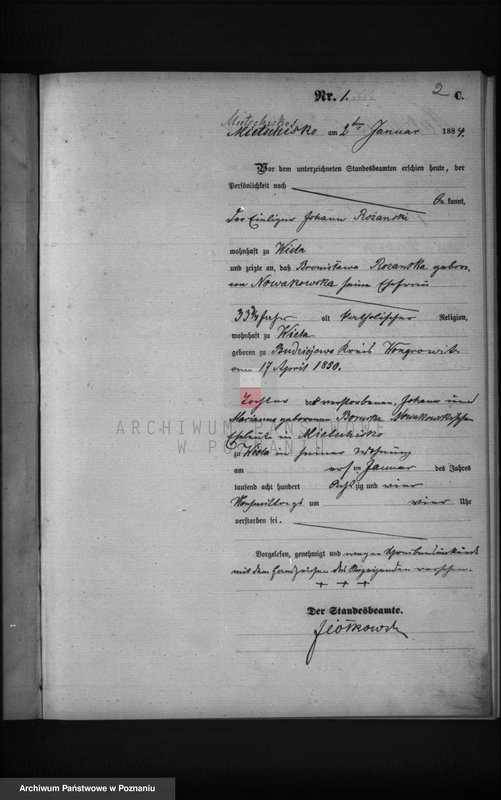 Nr. 1.
2
C.
Mietschisko
Mietschisko am 2ten Januar 1884.
Vor dem unterzeichneten Standesbeamten erschien heute, der
Persönlichkeit nach
be kannt,
der Einlieger Johann Rożanski
wohnhaft zu Wiela
und zeigte an, daß Bronisława Rozanska gebore
ne Nowakowska seine Ehefrau
33¾ Jahr alt katholischer Religion,
wohnhaft zu Wiela
geboren zu Budziejewo Kreis Wongrowitz
am 17 April 1850.
Tochter der verstorbenen Johann und
Marianna geborenen Borucka Nowakowskischen
Eheleute in Mietschisko
zu Wiela in seiner Wohnung
am ersten Januar des Jahres
tausend acht hundert achtzig und vier
Vormittags um vier Uhr
verstorben sei.
Vorgelesen, genehmigt und wegen Schreibensunkunde
mit dem Handzeichen des Anzeigenden versehen.
+ + +
Der Standesbeamte.
ARCHIWUM PAŃSTWOWE
W POZNANIU
Archiwum Państwowe w Poznaniu